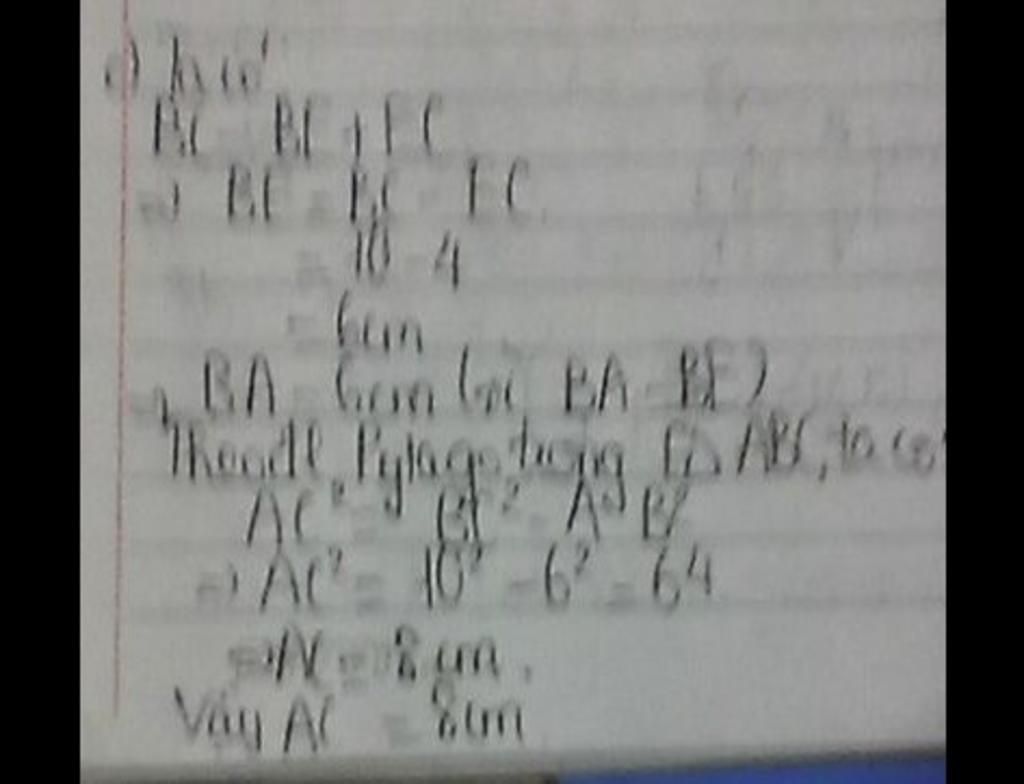 c) Ta có
BC = BE + EC
=> BE = BC - EC
= 10 - 4
= 6cm
=> BA = 6cm (vì BA = BE)
Theo đl Pytago trong ABC, ta có
AC² = BC² - AB²
=> AC² = 10² - 6² = 64
=> AC = 8cm.
Vậy AC = 8cm